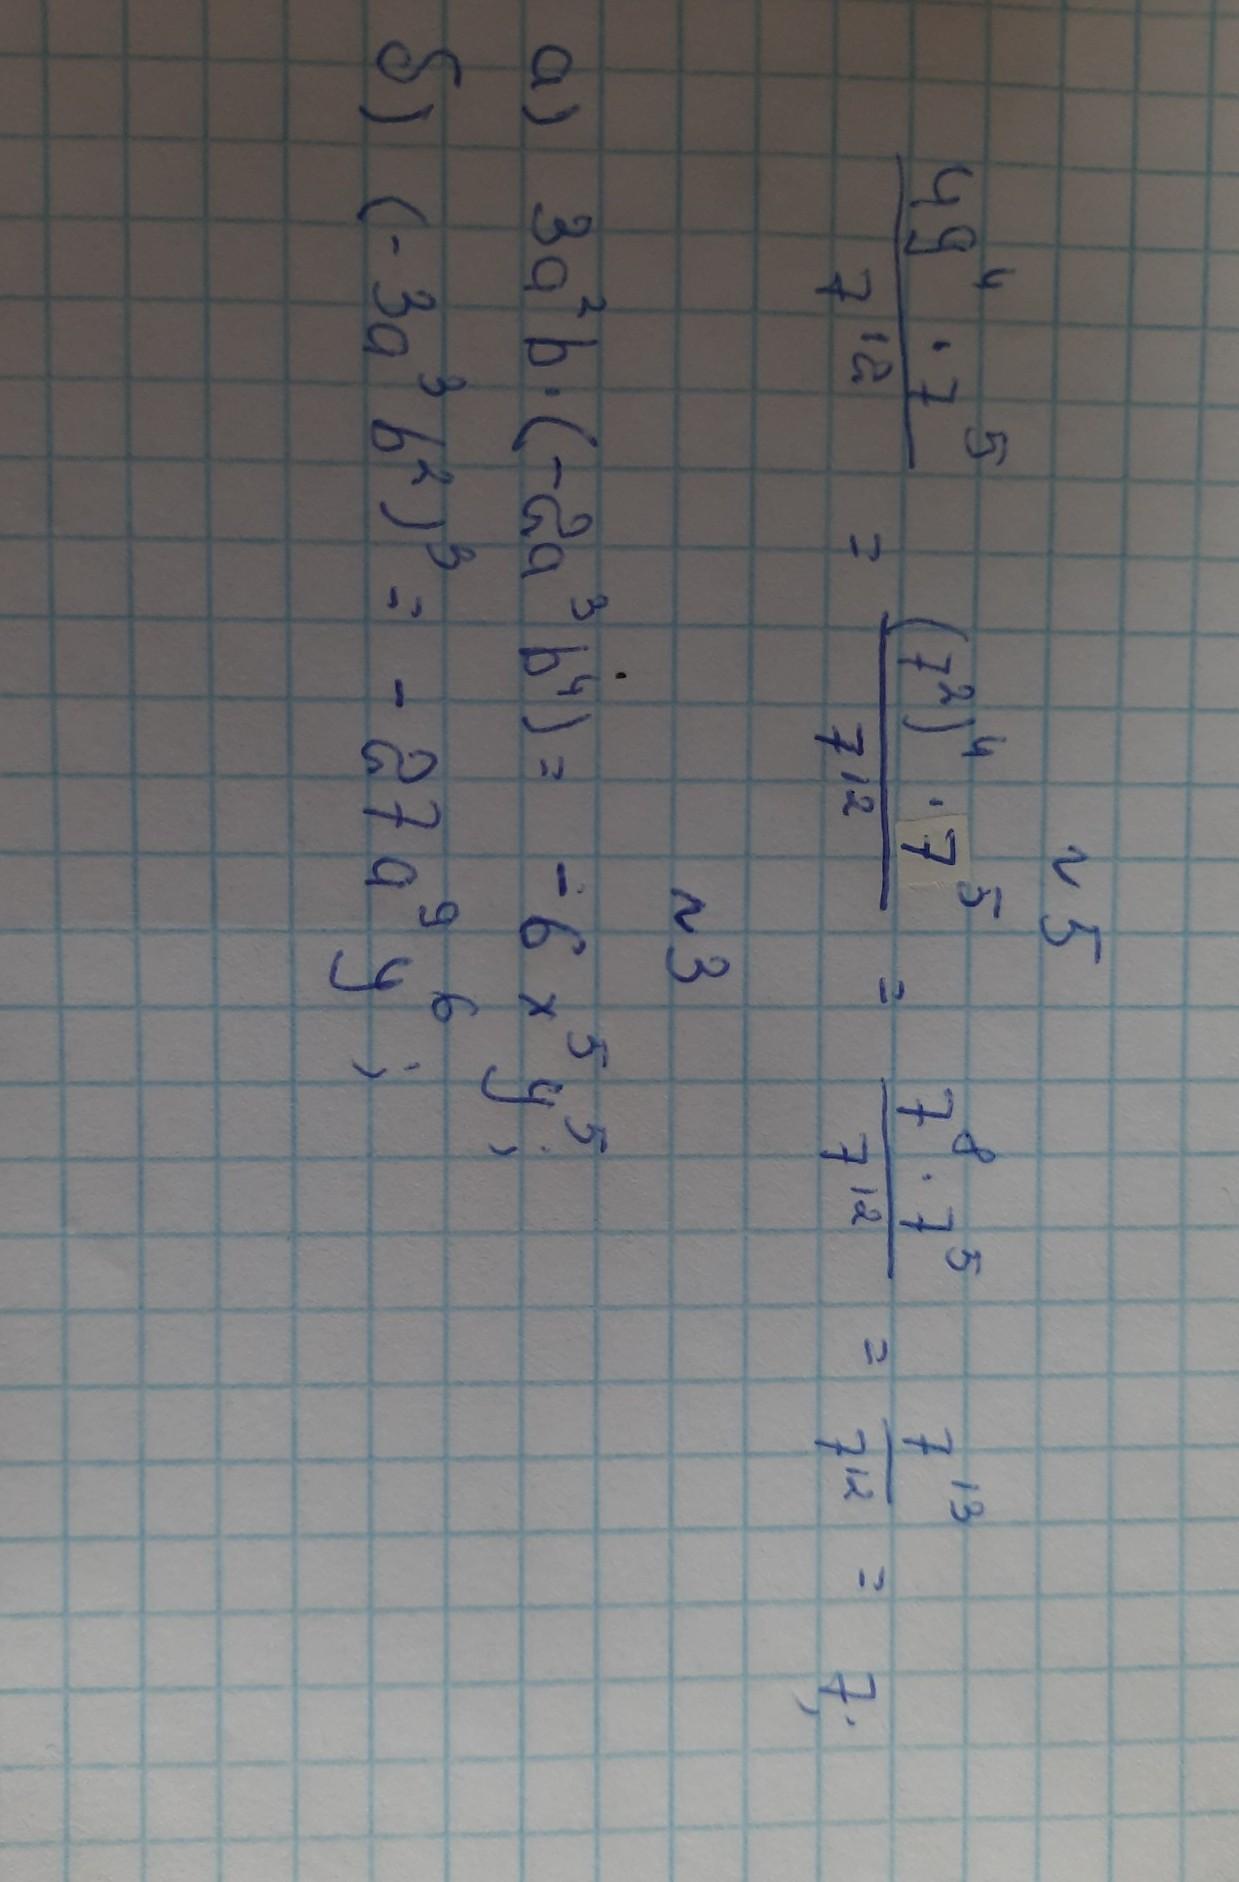 N 5
49⁴ · 7⁵ / 7¹² = (7²)⁴ · 7⁵ / 7¹² = 7⁸ · 7⁵ / 7¹² = 7¹³ / 7¹² = 7;
N 3
а) 3a²b · (-2a³b⁴) = -6x⁵y⁵;
б) (-3a³b²)³ = -27a⁹y⁶;